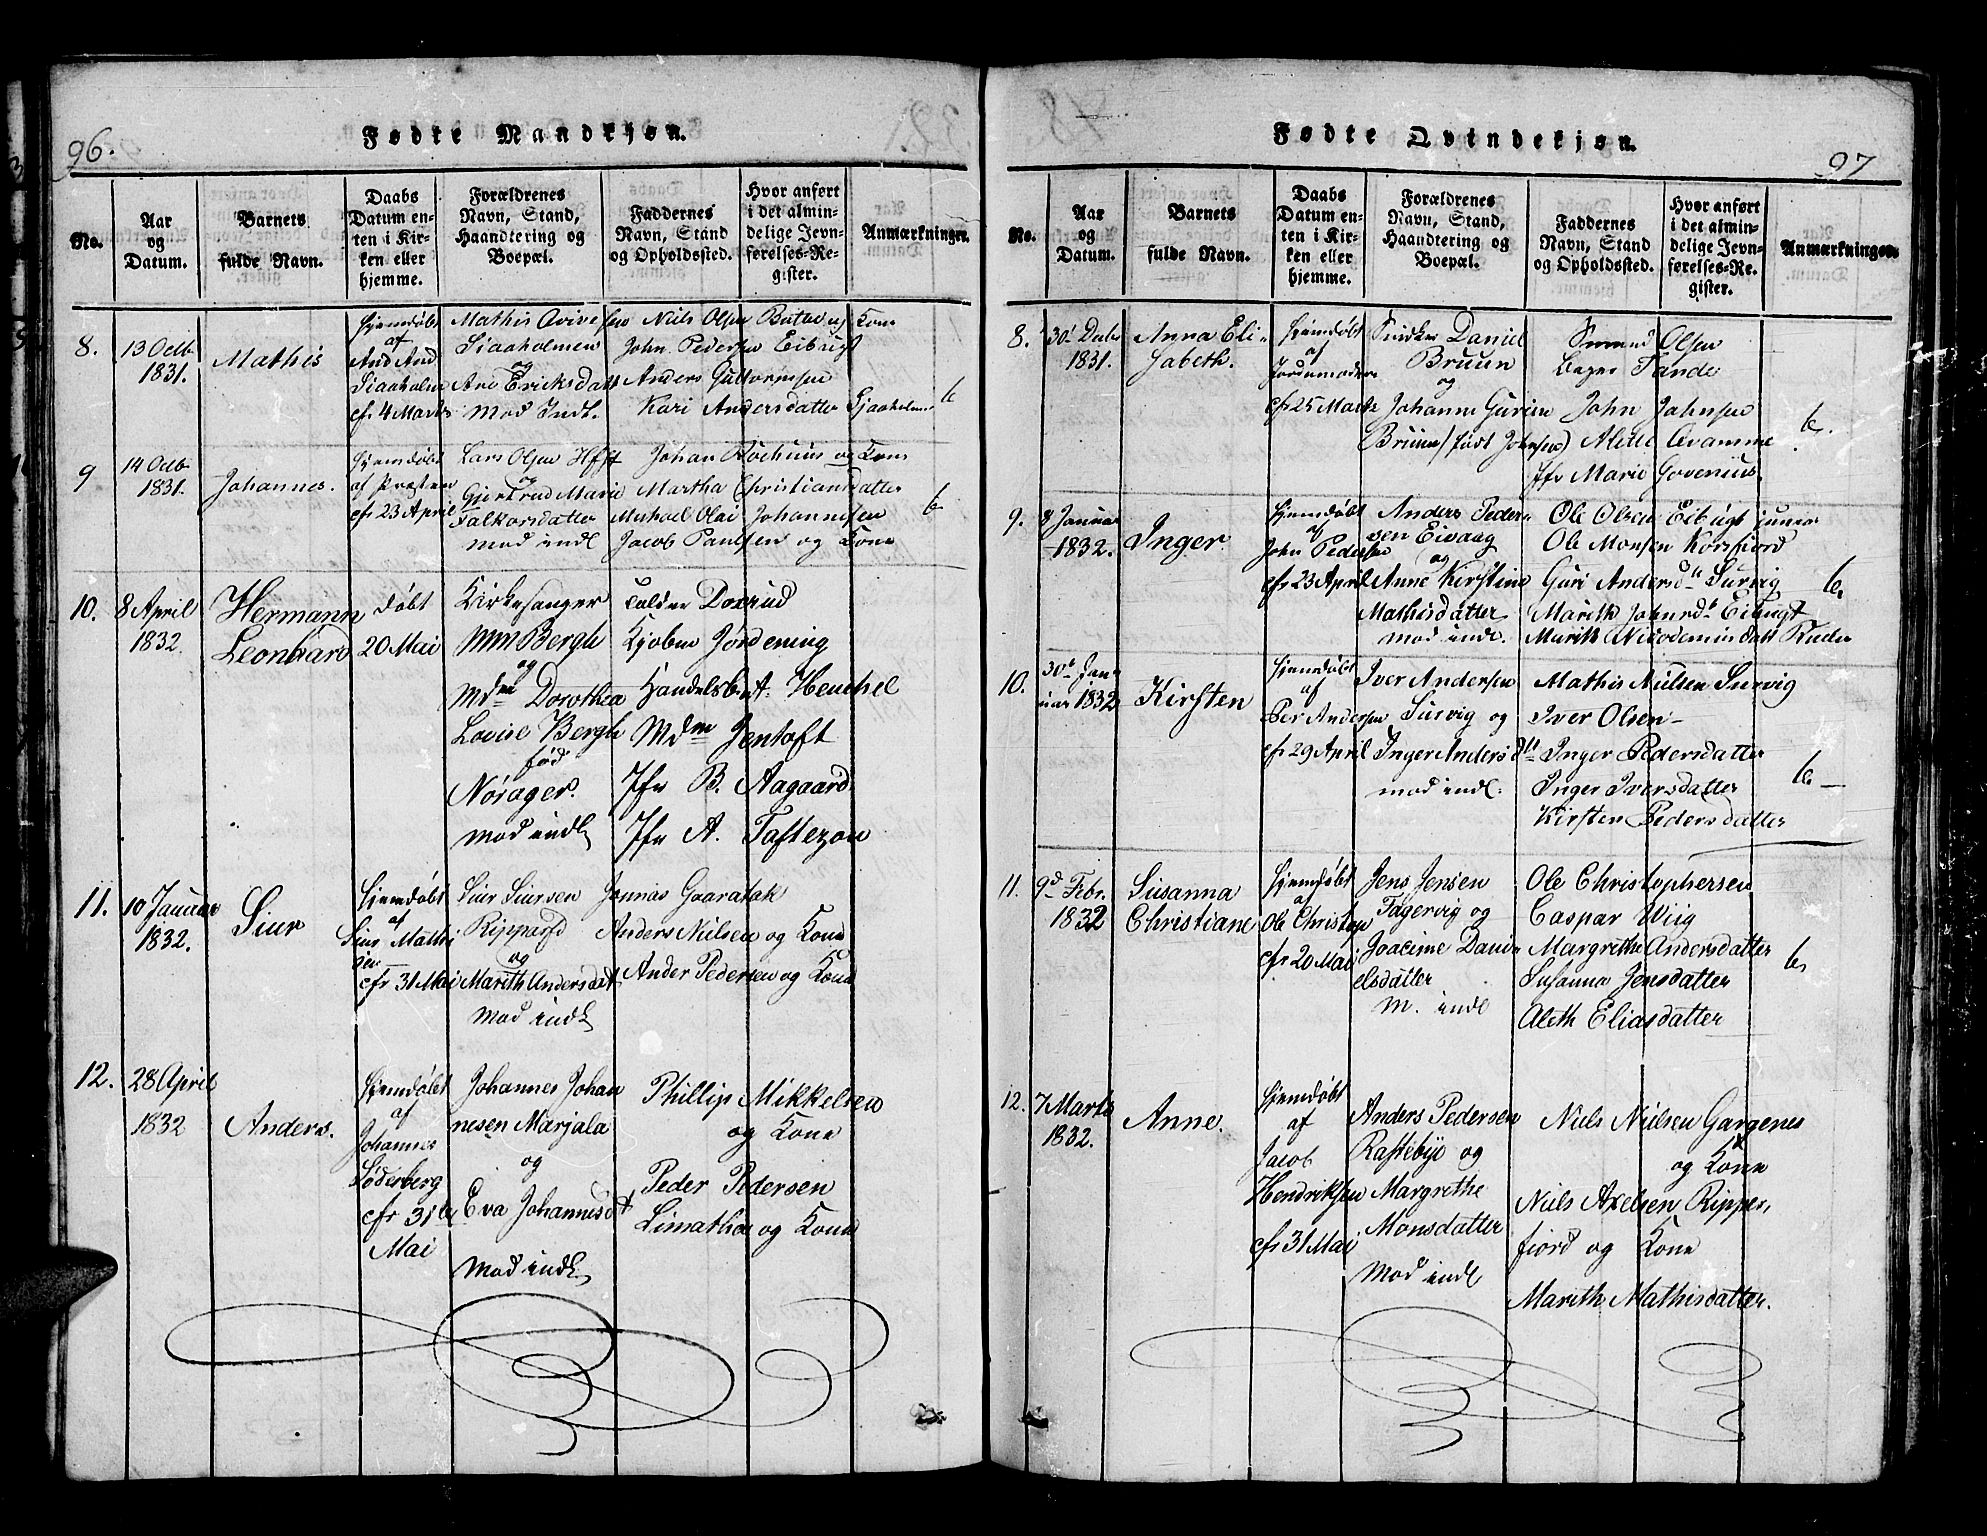 96.
Fødte Mandkjøn.
No.
Aar
og
Datum.
Barnets
fulde Navn.
Daabs
Datum en-
ten i Kir-
ken eller
hjemme.
Forældrenes
Navn, Stand,
Haandtering og
Boepæl.
Faddernes
Navn, Stand
og Opholdssted.
Hvor anført
i det almin-
delige Jevn-
førelses-Re-
gister.
Anmærkninger.
8.
13 Octb
1831.
Mathis
Hjemdøbt
af
And And
Siaaholm
cfr 4 Marts
Mathis
Siaaholmen
og
Ane Ericksdatt
mod Indl.
Niels Olsen og Kone
John Pedersen Eibugt
Anders Guttormsen
Kari Andersdatter Sjaaholm
6
9
14 Octb
1831.
Johannes.
Hjemdøbt
af Præsten
cfr 23 April
Lars Olsen
og
Gjertrud Marie
Falkorsdatter
mod indl
Johan og Kone
Martha Christiansdatter
Michael Olai Johannesen
Jacob Paulsen og Kone
6
10.
8 April
1832.
Hermann
Leonhard
døbt
20 Mai
Kirkesanger
Bergh
og
Mdm Dorothea
Lovise Bergh
fød
Nørager.
mod indl
Kjøbm Jordening
Handelsbet. Henchel
Mdm Jentoft
Jfr B. Aagaard
Jfr A. Taftezon
11.
10 Januar
1832.
Siur
Hjemdøbt
af
Siur Mathi
sen
cfr 31 Mai
Siur Siursen
Ripparfd
og
Marith Andersdat
mod indl
Jonnas Gaaratak
Anders Nielsen og Kone
Ander Pedersen og Kone
12.
28 April
1832
Anders.
Hjemdøbt
af
Johannes
Søderberg
cfr 31te
Mai
Johannes Johan
nesen Marjala
og
Eva Johannesdt
mod indl
Phillip Mikkelsen
og Kone
Peder Pedersen
Limatha og Kone
97
Fødte Qvindekjøn.
No.
Aar
og
Datum.
Barnets
fulde Navn.
Daabs
Datum en-
ten i Kir-
ken eller
hjemme.
Forældrenes
Navn, Stand,
Haandtering og
Boepæl.
Faddernes
Navn, Stand
og Opholdssted.
Hvor anført
i det almin-
delige Jevn-
førelses-Re-
gister.
Anmærkninger.
8.
30 Decbr
1831.
Anna Eli-
sabeth.
Hjemdøbt
af
Jordemoderen
cfr 25 Marts
Snidker Daniel
Bruun
og
Johanne Gurine
Bruun (født Johnsen)
Olsen
Bager Tande
John Johnsen
Aletie Avamme
Jfr Marie Govenius
6.
9.
8 Januar
1832.
Inger
Hjemdøbt
af
John Pedersen
cfr 23 April
Anders Peder-
sen Eivaag
og
Anne Kirstine
Mathisdatter
mod indl.
Ole Olsen Eibugt junior
Ole Monsen Korsfiord
Guri Andersdtt Survig
Marith Johnsdt Eibugt
Marith Nicodemusdatt
6
10.
30te Jan-
uar 1832
Kirsten
Hjemdøbt
af
Per Andersen
cfr 29 April
Iver Andersen
Survig og
Inger Andersdtt
mod indl.
Mathis Nielsen Survig
Iver Olsen —
Inger Pedersdatter
Inger Iversdatter
Kirsten Pedersdatter
6 —
11.
9d Febr.
1832
Susanna
Christiane
Hjemdøbt
af
Ole Christop
cfr 20 Mai
Jens Jensen
Fagervig og
Joacime Dani-
elsdatter
m. indl
Ole Christophersen
Caspar Wiig
Margrethe Andersdatter
Susanna Jensdatter
Aleth Eliasdatter
6
12.
7 Marts
1832.
Anne.
Hjemdøbt
af
Jacob
Hendriksen
cfr 31 Mai
Anders Pedersen
Rastebye og
Margrethe
Monsdatter
mod indl
Niels Nielsen Gargenes
og Kone
Niels Axelsen Ripper,
fiord og Kone
Marith Mathisdatter.